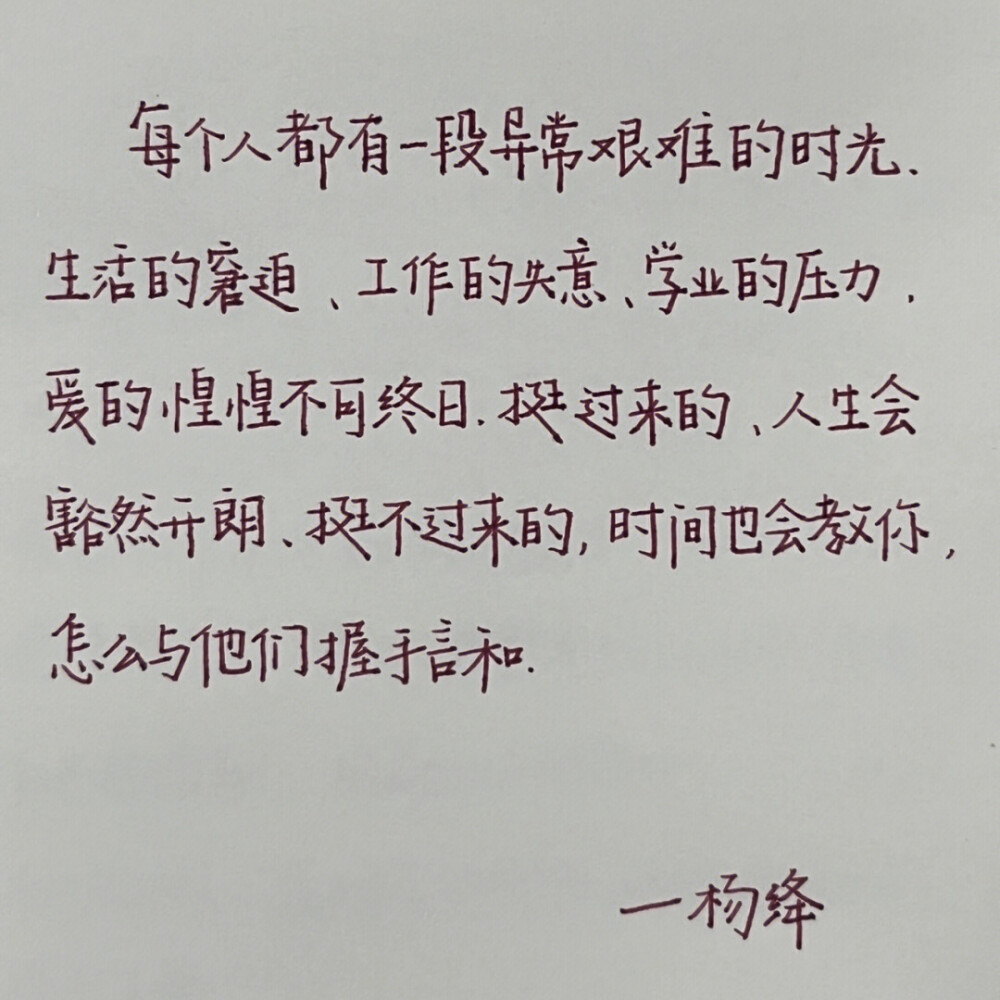 每个人都有一段异常艰难的时光.
生活的窘迫、工作的失意、学业的压力,
爱的惶惶不可终日.挺过来的、人生会
豁然开朗、挺不过来的,时间也会教你,
怎么与他们握手言和.
一杨绛